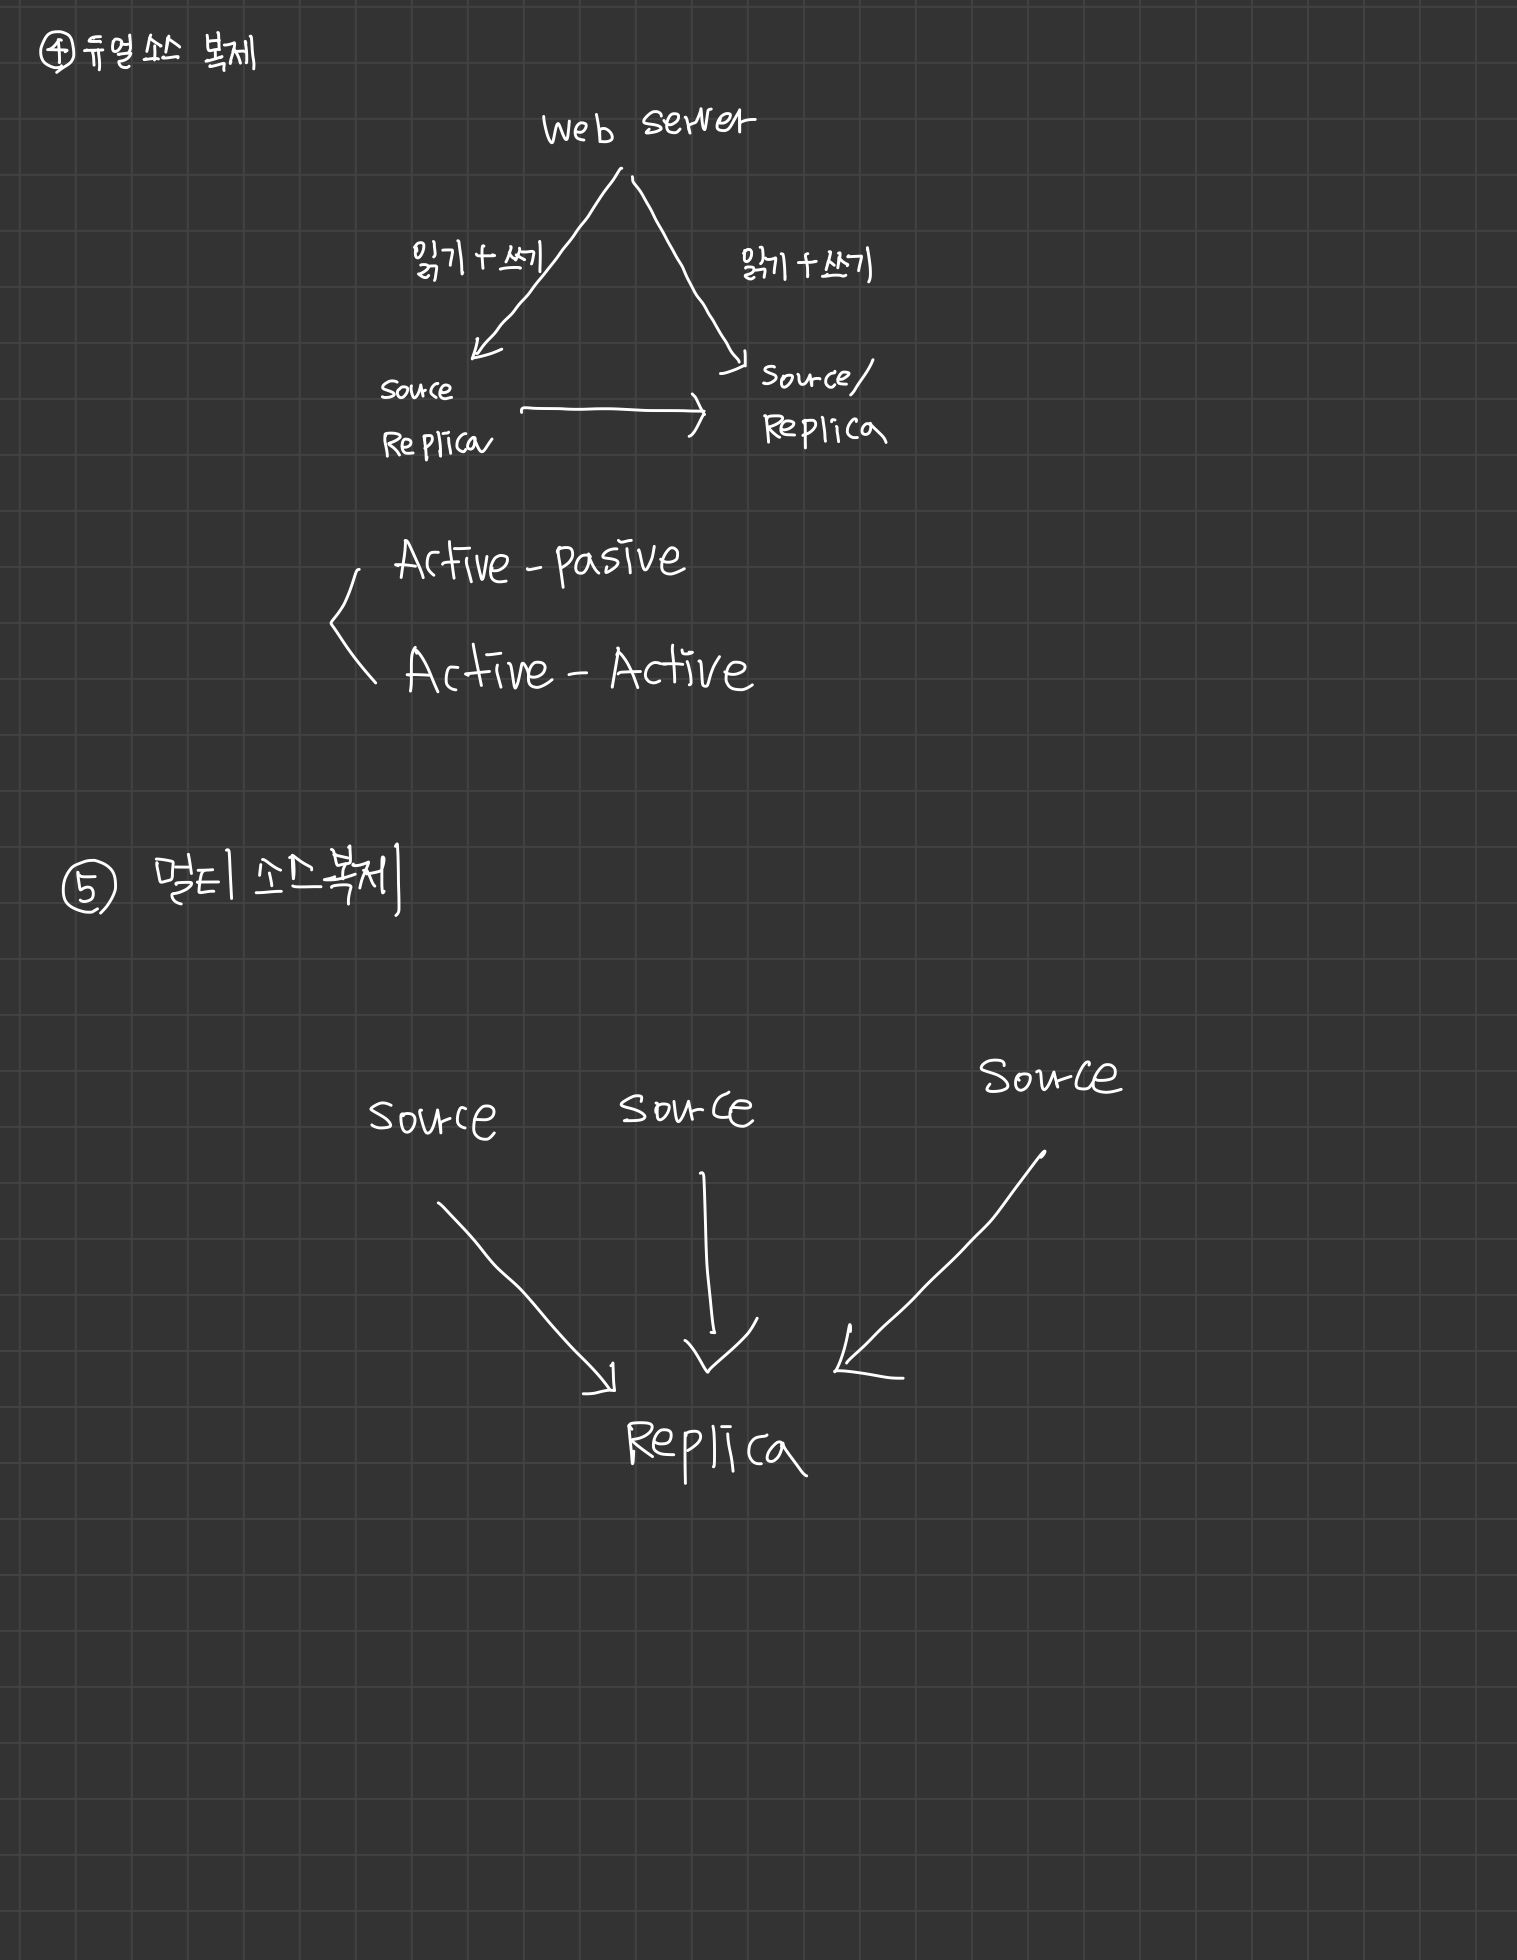 ④ 듀얼 소스 복제
Web server
읽기 + 쓰기
읽기 + 쓰기
Source
Replica
Source/
Replica
Active - pasive
Active - Active
⑤ 멀티 소스 복제
Source
Source
Source
Replica